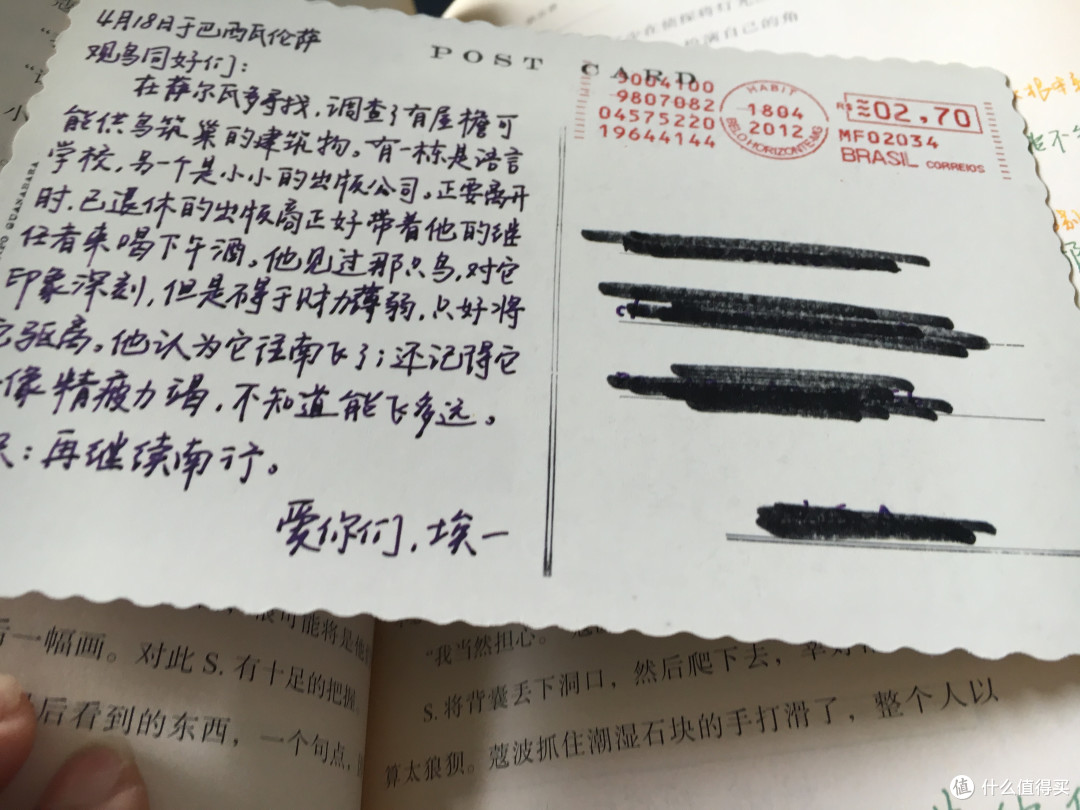 4月18日于巴西瓦伦萨
观鸟同好们：
在萨尔瓦多寻找，调查了有屋檐可
能供鸟筑巢的建筑物。有一栋是语言
学校，另一个是小小的出版公司。正要离开
时，已退休的出版商正好带着他的继
任者来喝下午酒。他见过那只鸟，对它
印象深刻，但是碍于财力薄弱，只好将
它驱离。他认为它往南飞了；还记得它
像精疲力竭，不知道能飞多远。
：再继续南行。
爱你们，埃一
POST CARD
9004100
9807082
04575220
19644144
HABIT
1804
2012
BELO HORIZONTE-MG
R$ 02,70
MF02034
BRASIL CORREIOS
演自己的角
很可能将是他
后一幅画。对此 S. 有十足的把握。
后看到的东西，一个句点，
“我当然担心。”
S. 将背囊丢下洞口，然后爬下去，幸好
算太狼狈。蔻波抓住潮湿石块的手打滑了，整个人以
值 什么值得买